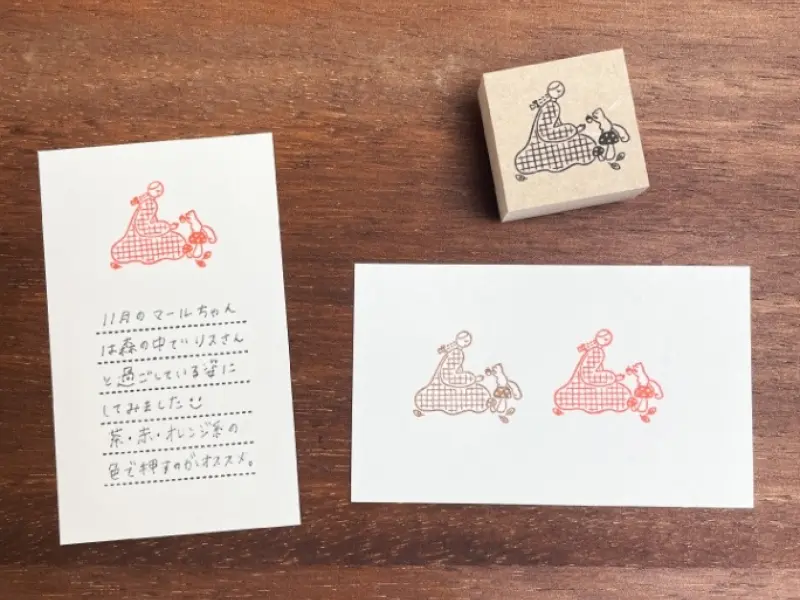 11月のマールちゃん
は森の中でリスさん
と過ごしている姿に
してみました
茶・赤・オレンジ系の
色で押すのがオススメ。